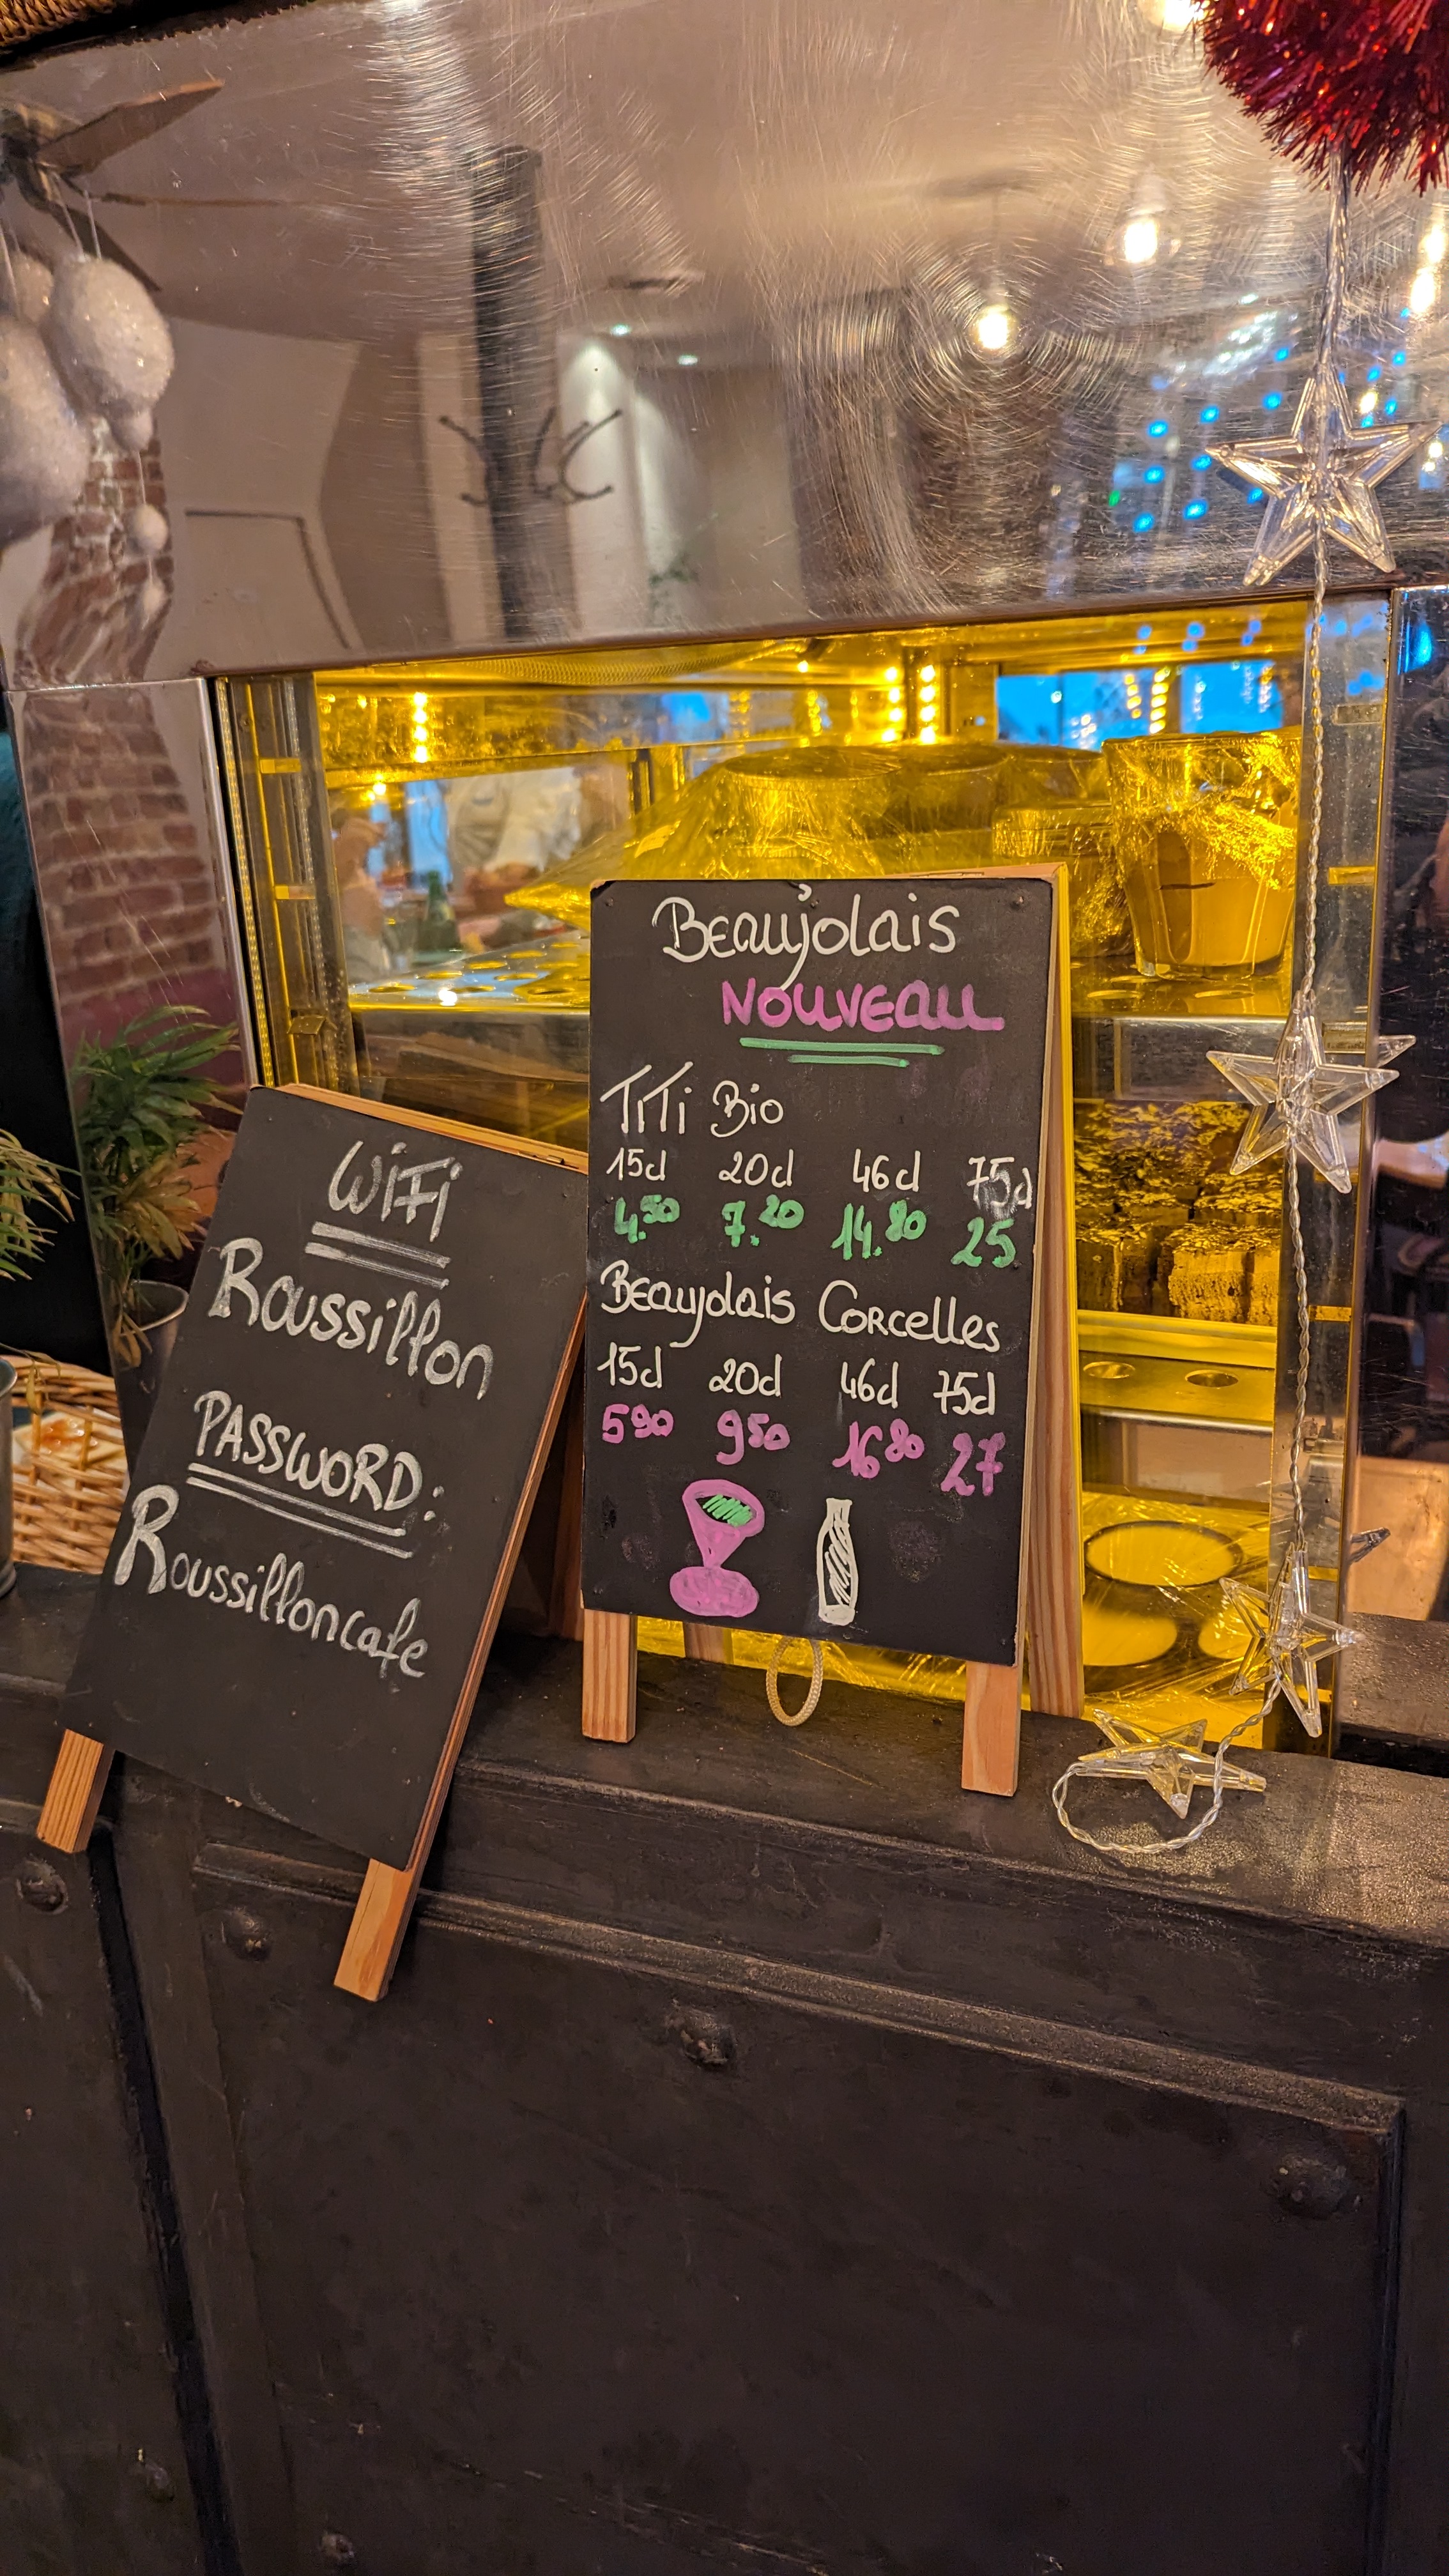 WiFi
Roussillon
PASSWORD:
Roussilloncafe
Beaujolais
NOUVEAU
TiTi Bio
15cl 20cl 46cl 75cl
4.50 7.20 14.80 25
Beaujolais Corcelles
15cl 20cl 46cl 75cl
5 90 9 50 16 80 27